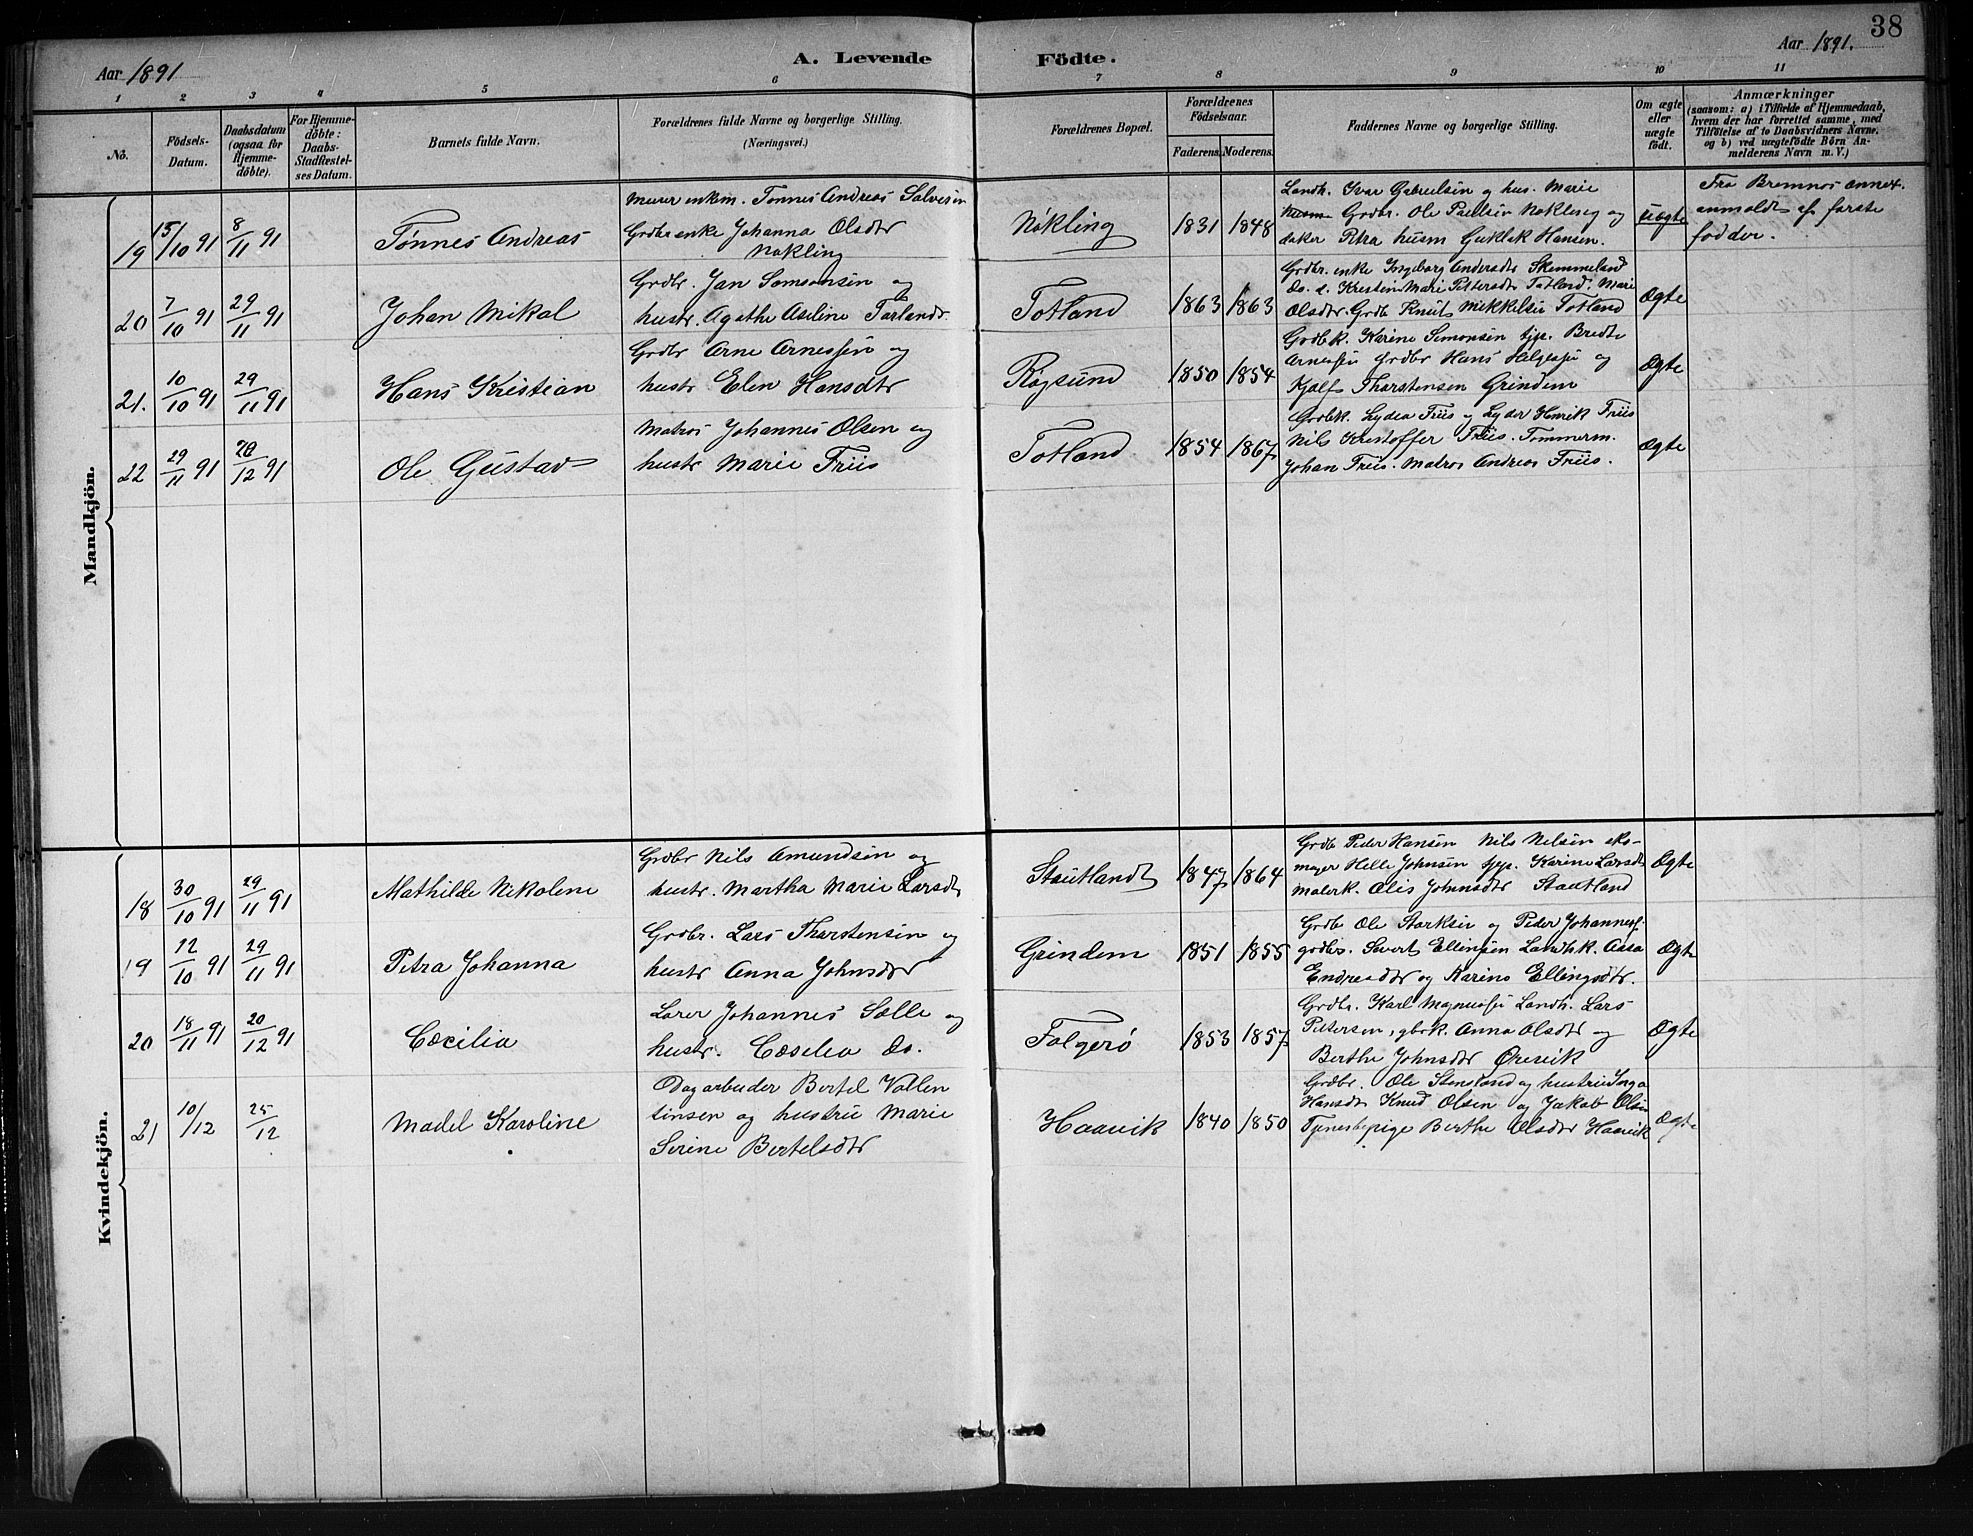 38
Aar 1891
A. Levende Födte.
Aar 1891.
1 2 3 4 5 6 7 8 9 10 11
No.
Födsels-Datum.
Daabsdatum (ogsaa for Hjemme-döbte).
For Hjemme-döbte: Daabs-Stadfæstel-ses Datum.
Barnets fulde Navn.
Forældrenes fulde Navne og borgerlige Stilling.
(Næringsvei.)
Forældrenes Bopæl.
Forældrenes Födselsaar.
Faderens. Moderens.
Faddernes Navne og borgerlige Stilling.
Om ægte eller uægte födt.
Anmærkninger
(saasom: a) i Tilfælde af Hjemmedaab,
hvem der har forrettet samme, med
Tilföielse af to Daabsvidners Navne,
og b) ved uægtefödte Börn An-
melderens Navn m. V.)
Mandkjön.
19 15/10 91 8/11 91 Tønnes Andreas
Murer enkem. Tønnes Andreas Salvesen
Grdbr enke Johanna Olsdtr
Nökling
Nökling 1831 1848
Landh. Ivar Gabrielsen og hus. Marie
Grdbr. Ole Paulsen Nökling og
Petra husm Gutlak Hansen.
uægte
Fra Bremnes annex.
anmeldt af første
fadder.
20 7/10 91 29/11 91 Johan Mikal
Grdbr. Jan Samsonsen og
hustr. Agathe Aseline Tarlandsr
Totland 1863 1863
Grdbr. enke Ingeborg Andersdtr Skimmeland
do. d. Kristine Marie Pettersdtr Totland. Marie
Olsdtr. Grdb Knut Mikkelsen Totland
Ægte
21. 10/10 91 29/11 91 Hans Kristian
Grdbr Arne Arnessen og
hustr Elen Hansdtr
Røgsund 1850 1854
Grdbk. Karine Simonsen tjp. Bredte
Arnessen Grdbr Hans Helgessen og
Kjalf Tharstensen Grindem
Ægte
22 29/11 91 26/12 91 Ole Gustav
Matros Johannes Olsen og
hustr Marie Friis
Totland 1854 1867
Grdbk. Lydea Friis og Lyder Henrik Friis
Nils Kristoffer Friis. Tømmerm.
Johan Friis. Matros Andreas Friis.
Ægte
Kvindekjön.
18 30/10 91 29/11 91 Mathilde Nikoline
Grdbr Nils Amundsen og
hustr. Martha Marie Larsdtr
Stautlandt 1847 1864
Grdb Peder Hansen Nils Nilsen sko-
mager Helle Johnsen tjp. Karine Larsdtr
Malerk. Olis Johnsdtr Stautland
Ægte
19 12/10 91 29/11 91 Petra Johanna
Grdbr. Lars Tharstensen og
hustr Anna Johnsdtr
Grindem 1851 1855
Grdb Ole Størksen og Peder Johanness.
grdbs. Sivert Ellingsen Landhk. Assa
Endresdtr og Karine Ellingsdtr.
Ægte
20 18/11 91 20/12 91 Cæcilia
Lærer Johannes Sælle og
hustr. Cæselia do.
Folgerö 1853 1857
Grdbr. Karl Magnussen Landh. Lars
Petersen, gbrk. Anna Olsdtr og
Berthe Johnsdtr Øresvik
Ægte
21 10/12 25/12 Madel Karoline
Dagarbeider Bertel Vallen
tinsen og hustrue Marie
Serine Bertelsdtr
Haavik 1840 1850
Grdbr. Ole Stensland og hustrue Inga
Hansdtr Knud Olsen og Jakob Olsen
Tjenestepige Berthe Olsdtr Haavik
Ægte